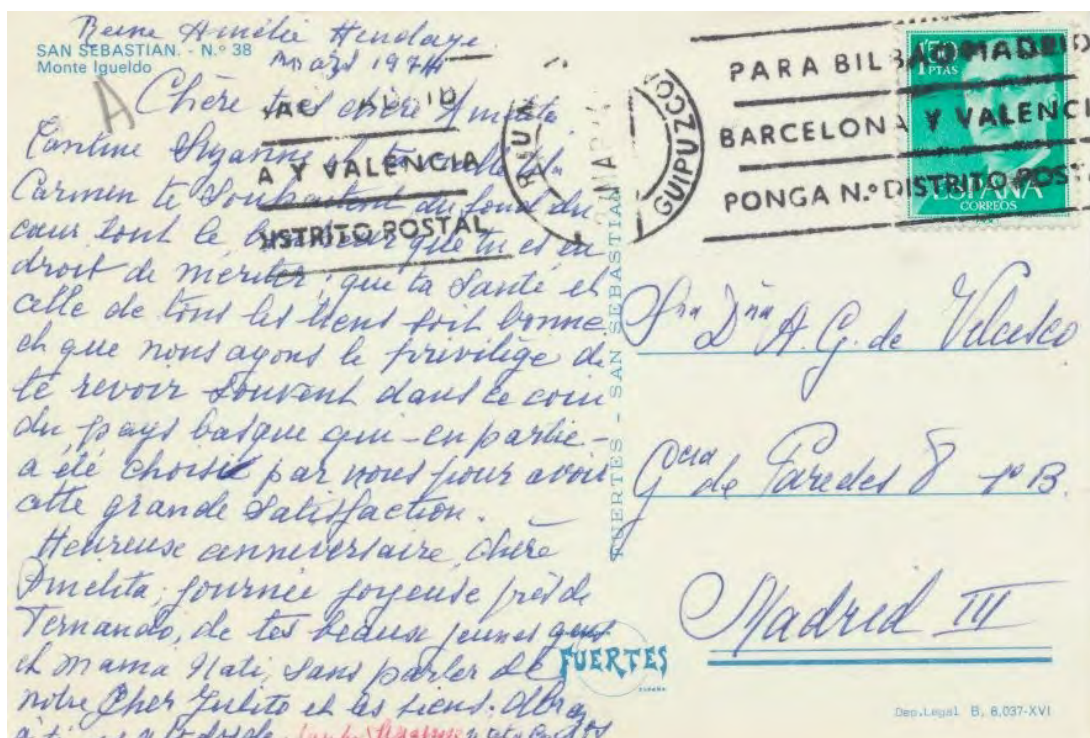 Reine Amélie Hendaye
SAN SEBASTIAN. - N.º 38
Monte Igueldo
Mars 1974
A
Chère très chère Amelita
Tantine Suzanne et ta
Carmen te souhaitent du fond du
cœur tout le bonheur que tu es en
droit de mériter; que ta santé et
celle de tous les tiens soit bonne
et que nous ayons le privilège de
te revoir souvent dans ce coin
du pays basque qui - en partie -
a été choisi par nous pour avoir
cette grande satisfaction.
Heureuse anniversaire, chère
Amelita; journée joyeuse près de
Fernando, de tes beaux jeunes gens
et Mama Nati, sans parler de
notre cher Julito et les siens. Abrazos
FUERTES - SAN SEBASTIAN
FUERTES
ESPAÑA
A Y VALENCIA
DISTRITO POSTAL
GUIPUZCO
MAR
PARA BILBAO MADRID
BARCELONA Y VALENC
PONGA N.º DISTRITO POSTA
PTAS
ESPAÑA
CORREOS
Sra Dña A. G. de Velasco
Gcia de Paredes 8 1º B.
Madrid III
Dep. Legal B. 8.037-XVI